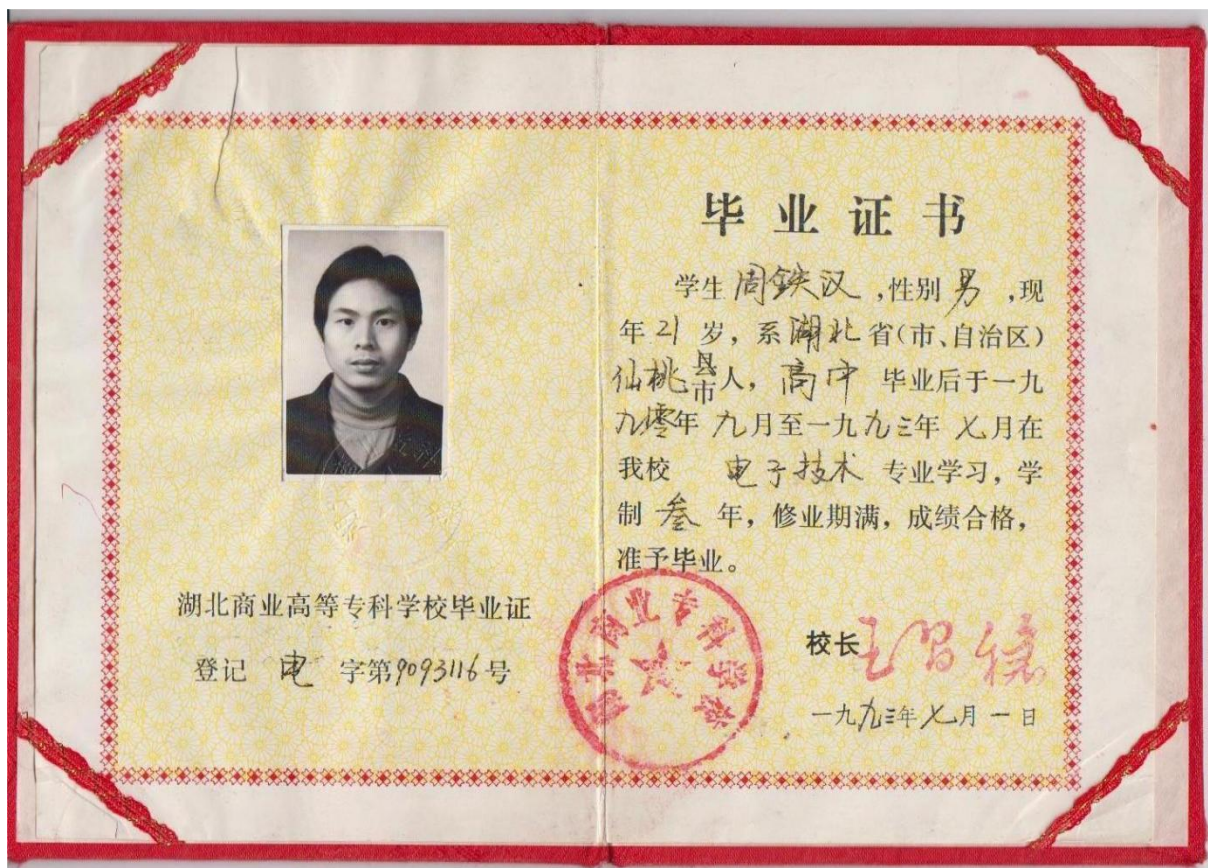 湖北商业高等专科学校毕业证
登记 电 字第9093116号
毕业证书
学生周铁汉,性别男,现
年21岁,系湖北省(市、自治区)
仙桃县市人,高中毕业后于一九
九零年九月至一九九三年七月在
我校 电子技术 专业学习,学
制叁年,修业期满,成绩合格,
准予毕业。
湖北商业专科学校
校长
一九九三年七月一日